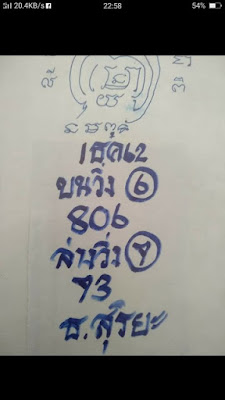 20.4KB/s 22:58 54%
1ธค62
บนวิ่ง 6
806
ล่างวิ่ง 9
93
ธ.สุริยะ